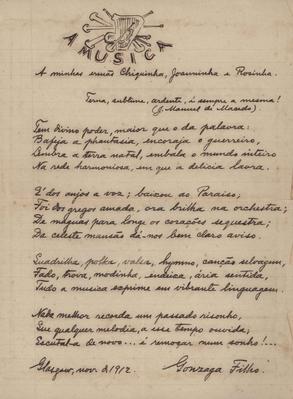 A MUSICA
A minhas irmãs Chiquinha, Joanninha e Rosinha.
Terna, sublime, ardente, é sempre a mesma!
(J. Manuel de Macedo).
Tem divino poder, maior que o da palavra:
Bafeja a phantasia, encoraja o guerreiro,
Lembra a terra natal, embala o mundo inteiro
Na rede harmoniosa, em que a delicia lavra.
É dos anjos a voz; baixou ao Paraiso;
Foi dos gregos amada, ora brilha na orchestra;
De maguas para longe os corações sequestra;
Da celeste mansão dá-nos bem claro aviso.
Quadrilha, polka, valsa, hymno, canção selvagem,
Fado, trova, modinha, endeixa, ária sentida,
Tudo a musica exprime em vibrante linguagem.
Nada melhor recorda um passado risonho,
Que qualquer melodia, a esse tempo ouvida;
Escutal-a de novo... é remoçar num sonho!...
Glasgow, nov. de 1912. Gonzaga Filho